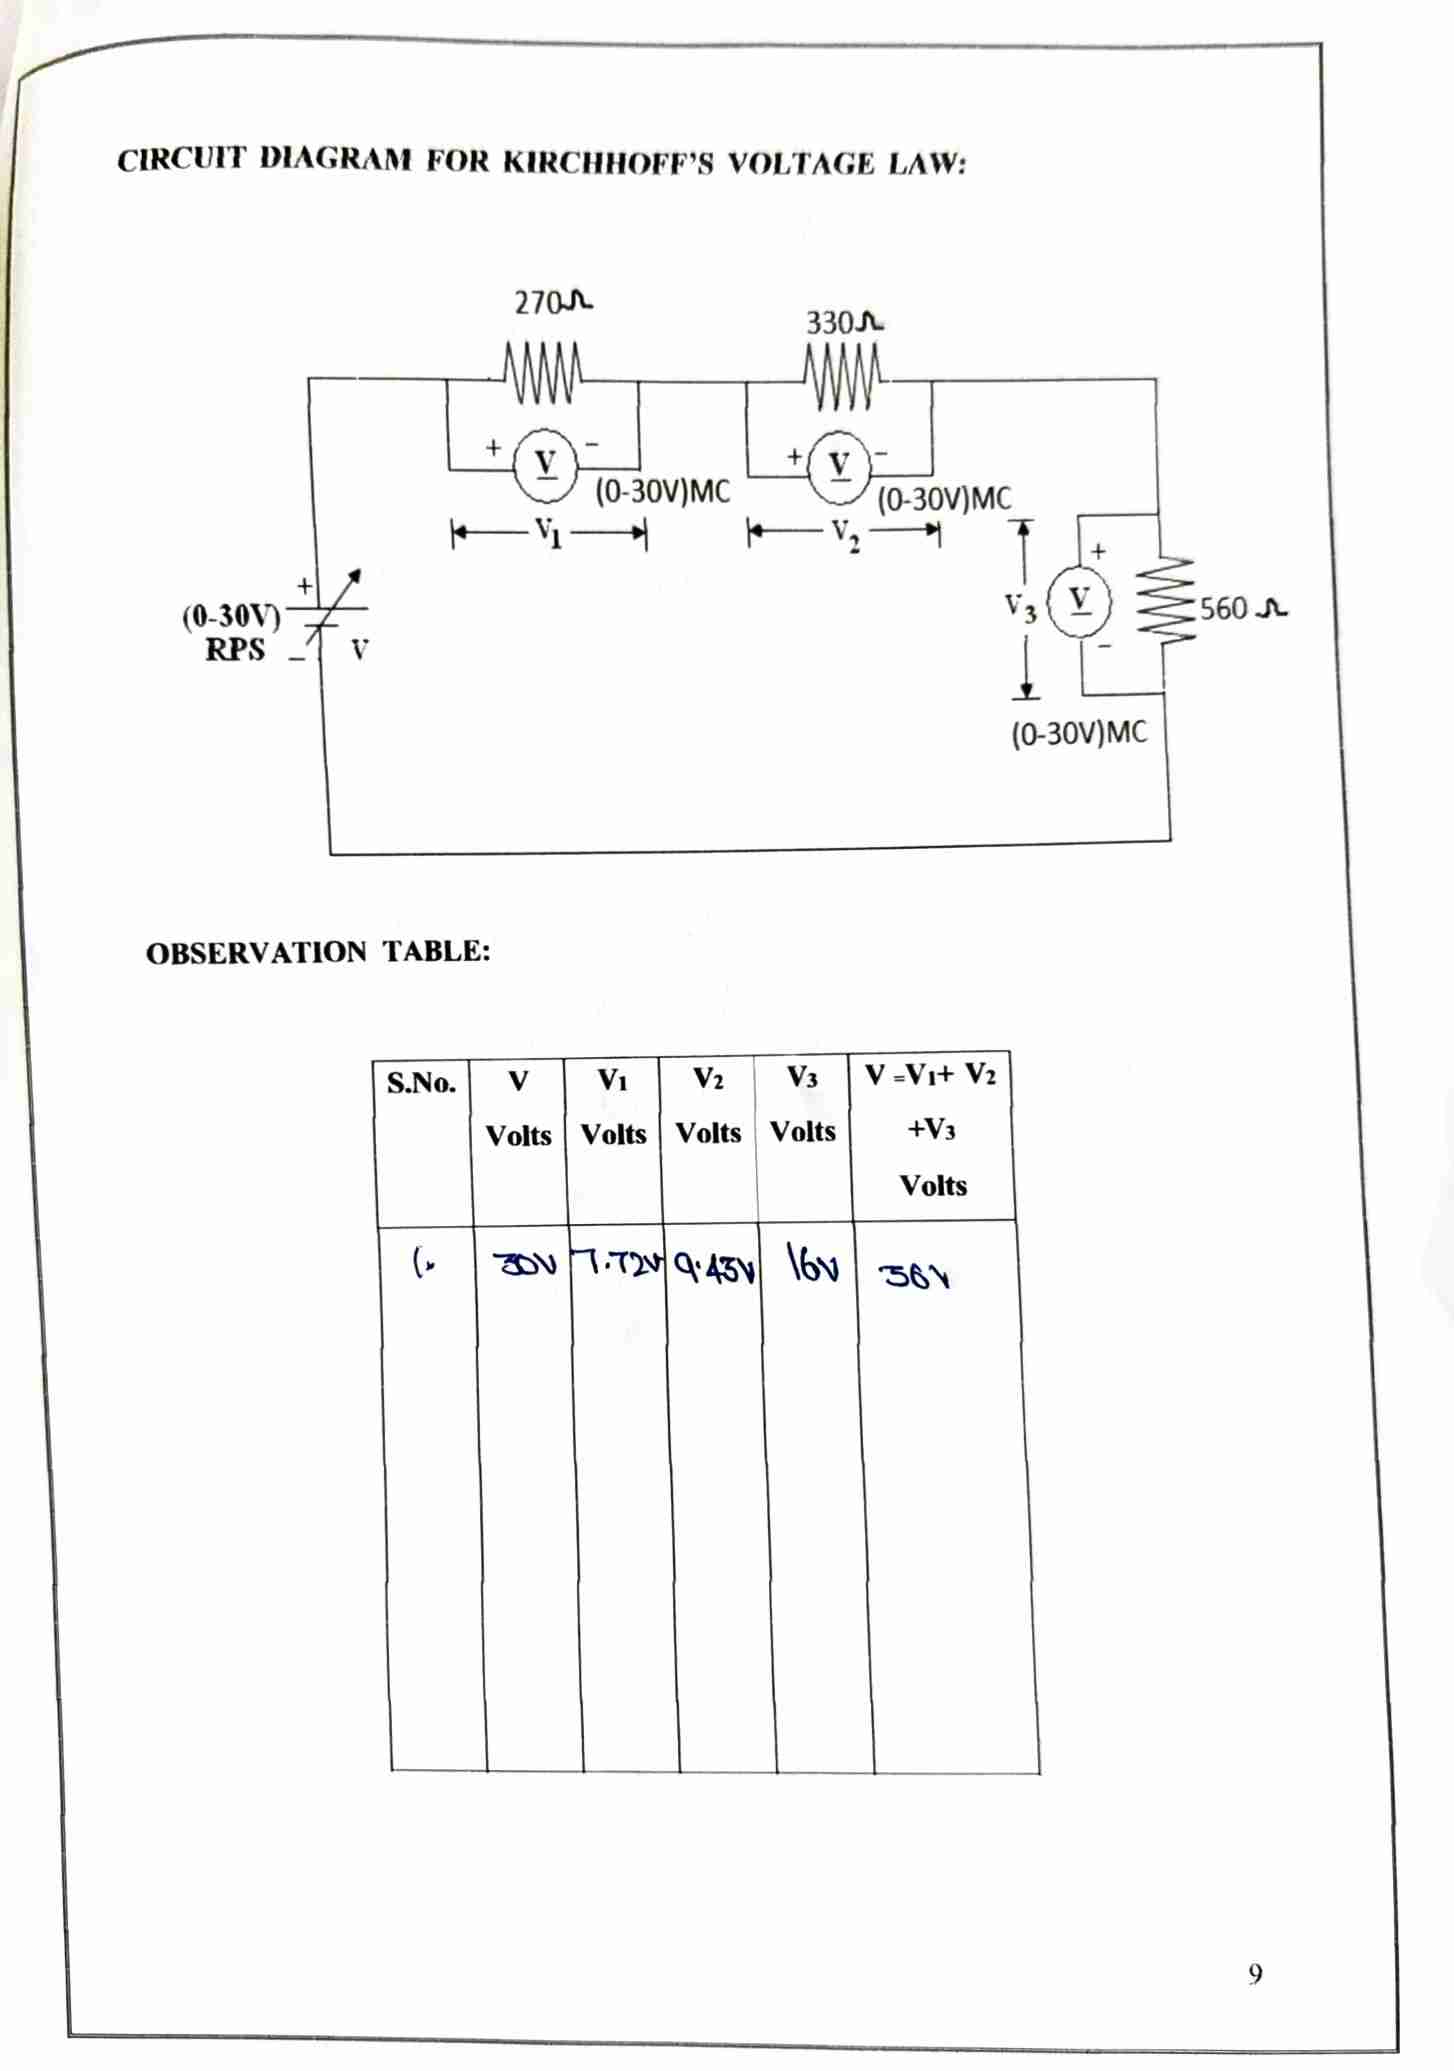 CIRCUIT DIAGRAM FOR KIRCHHOFF'S VOLTAGE LAW:
270Ω
330Ω
+ V −
+ V −
(0-30V)MC
(0-30V)MC
V1
V2
+
+
(0-30V)
V3
V
560 Ω
RPS
− V
−
(0-30V)MC
OBSERVATION TABLE:
S.No. V V1 V2 V3 V =V1+ V2
Volts Volts Volts Volts +V3
Volts
1. 30V 7.72V 9.43V 16V 36V
9